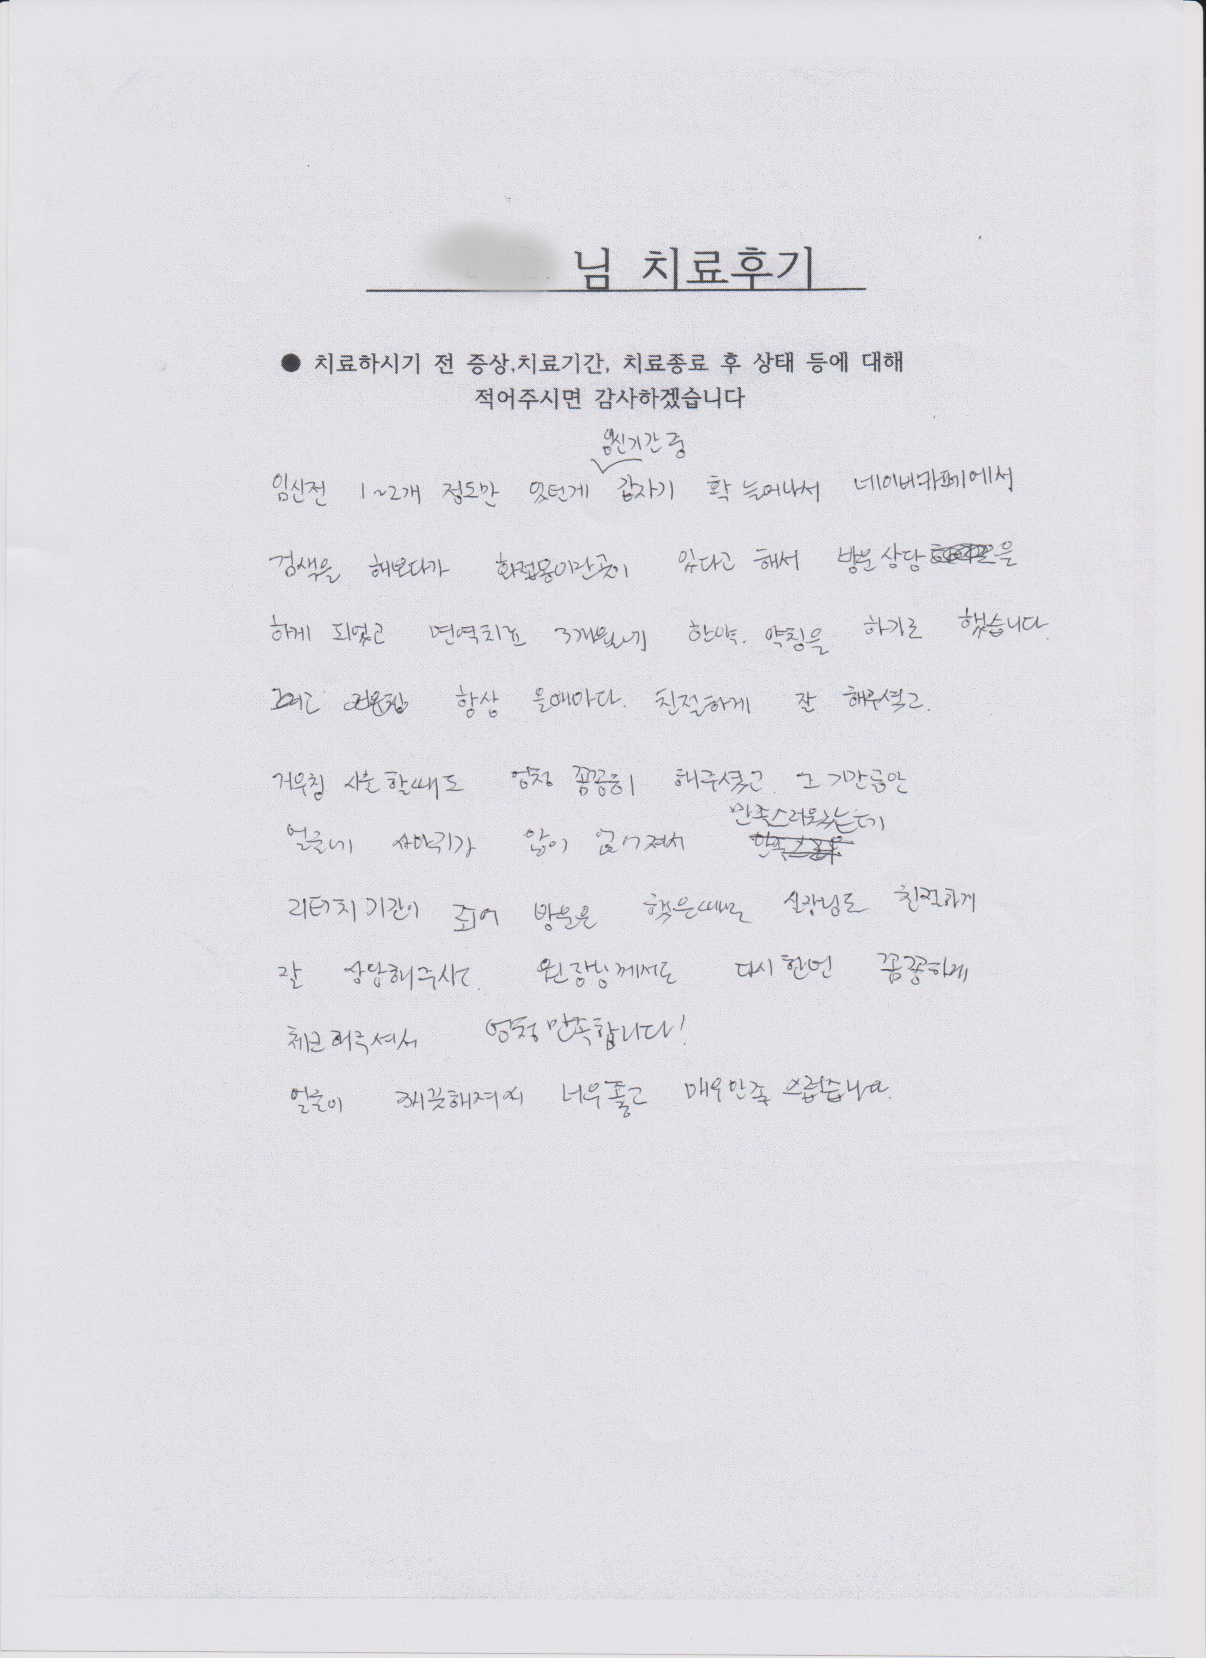 님 치료후기
● 치료하시기 전 증상,치료기간, 치료종료 후 상태 등에 대해
적어주시면 감사하겠습니다
임신기간 중
임신전 1~2개 정도만 있던게 갑자기 확 늘어나서 네이버카페에서
검색을 해보다가 화접몽이란곳이 있다고 해서 방문상담을
하게 되었고 면역치료 3개월내 한약. 약침을 하기로 했습니다.
항상 올때마다. 친절하게 잘 해주셨고.
시술할때도 엄청 꼼꼼히 해주셨고. 그 기간동안
만족스러웠는데
얼굴에 사마귀가 많이 없어져서
리터치기간이 되어 방문을 했을때도 실장님도 친절하게
잘 상담해주시고. 원장님께서도 다시한번 꼼꼼하게
체크해주셔서 엄청만족합니다!
얼굴이 깨끗해져서 너무좋고 매우만족스럽습니다.